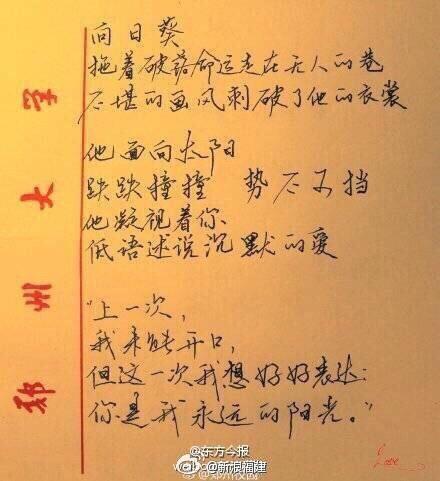 向日葵
拖着破落命运走在无人的巷
不堪的画风刺破了他的衣裳
他面向太阳
跌跌撞撞 势不可挡
他凝视着你
低语述说沉默的爱
"上一次,
我未能开口,
但这一次我想好好表达:
你是我永远的阳光。"
郑州大学
Love
@东方今报
@新浪福建